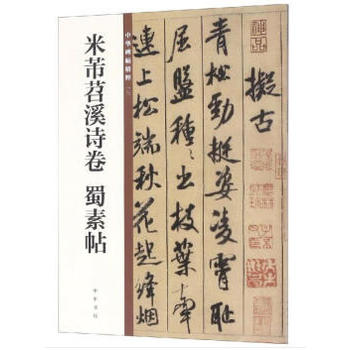 中华碑帖精粹
米芾苕溪诗卷 蜀素帖
中华书局
擬古
青松勁挺姿凌霄耻
屈盤種〻出枝葉牽
連上松端秋花起絳烟